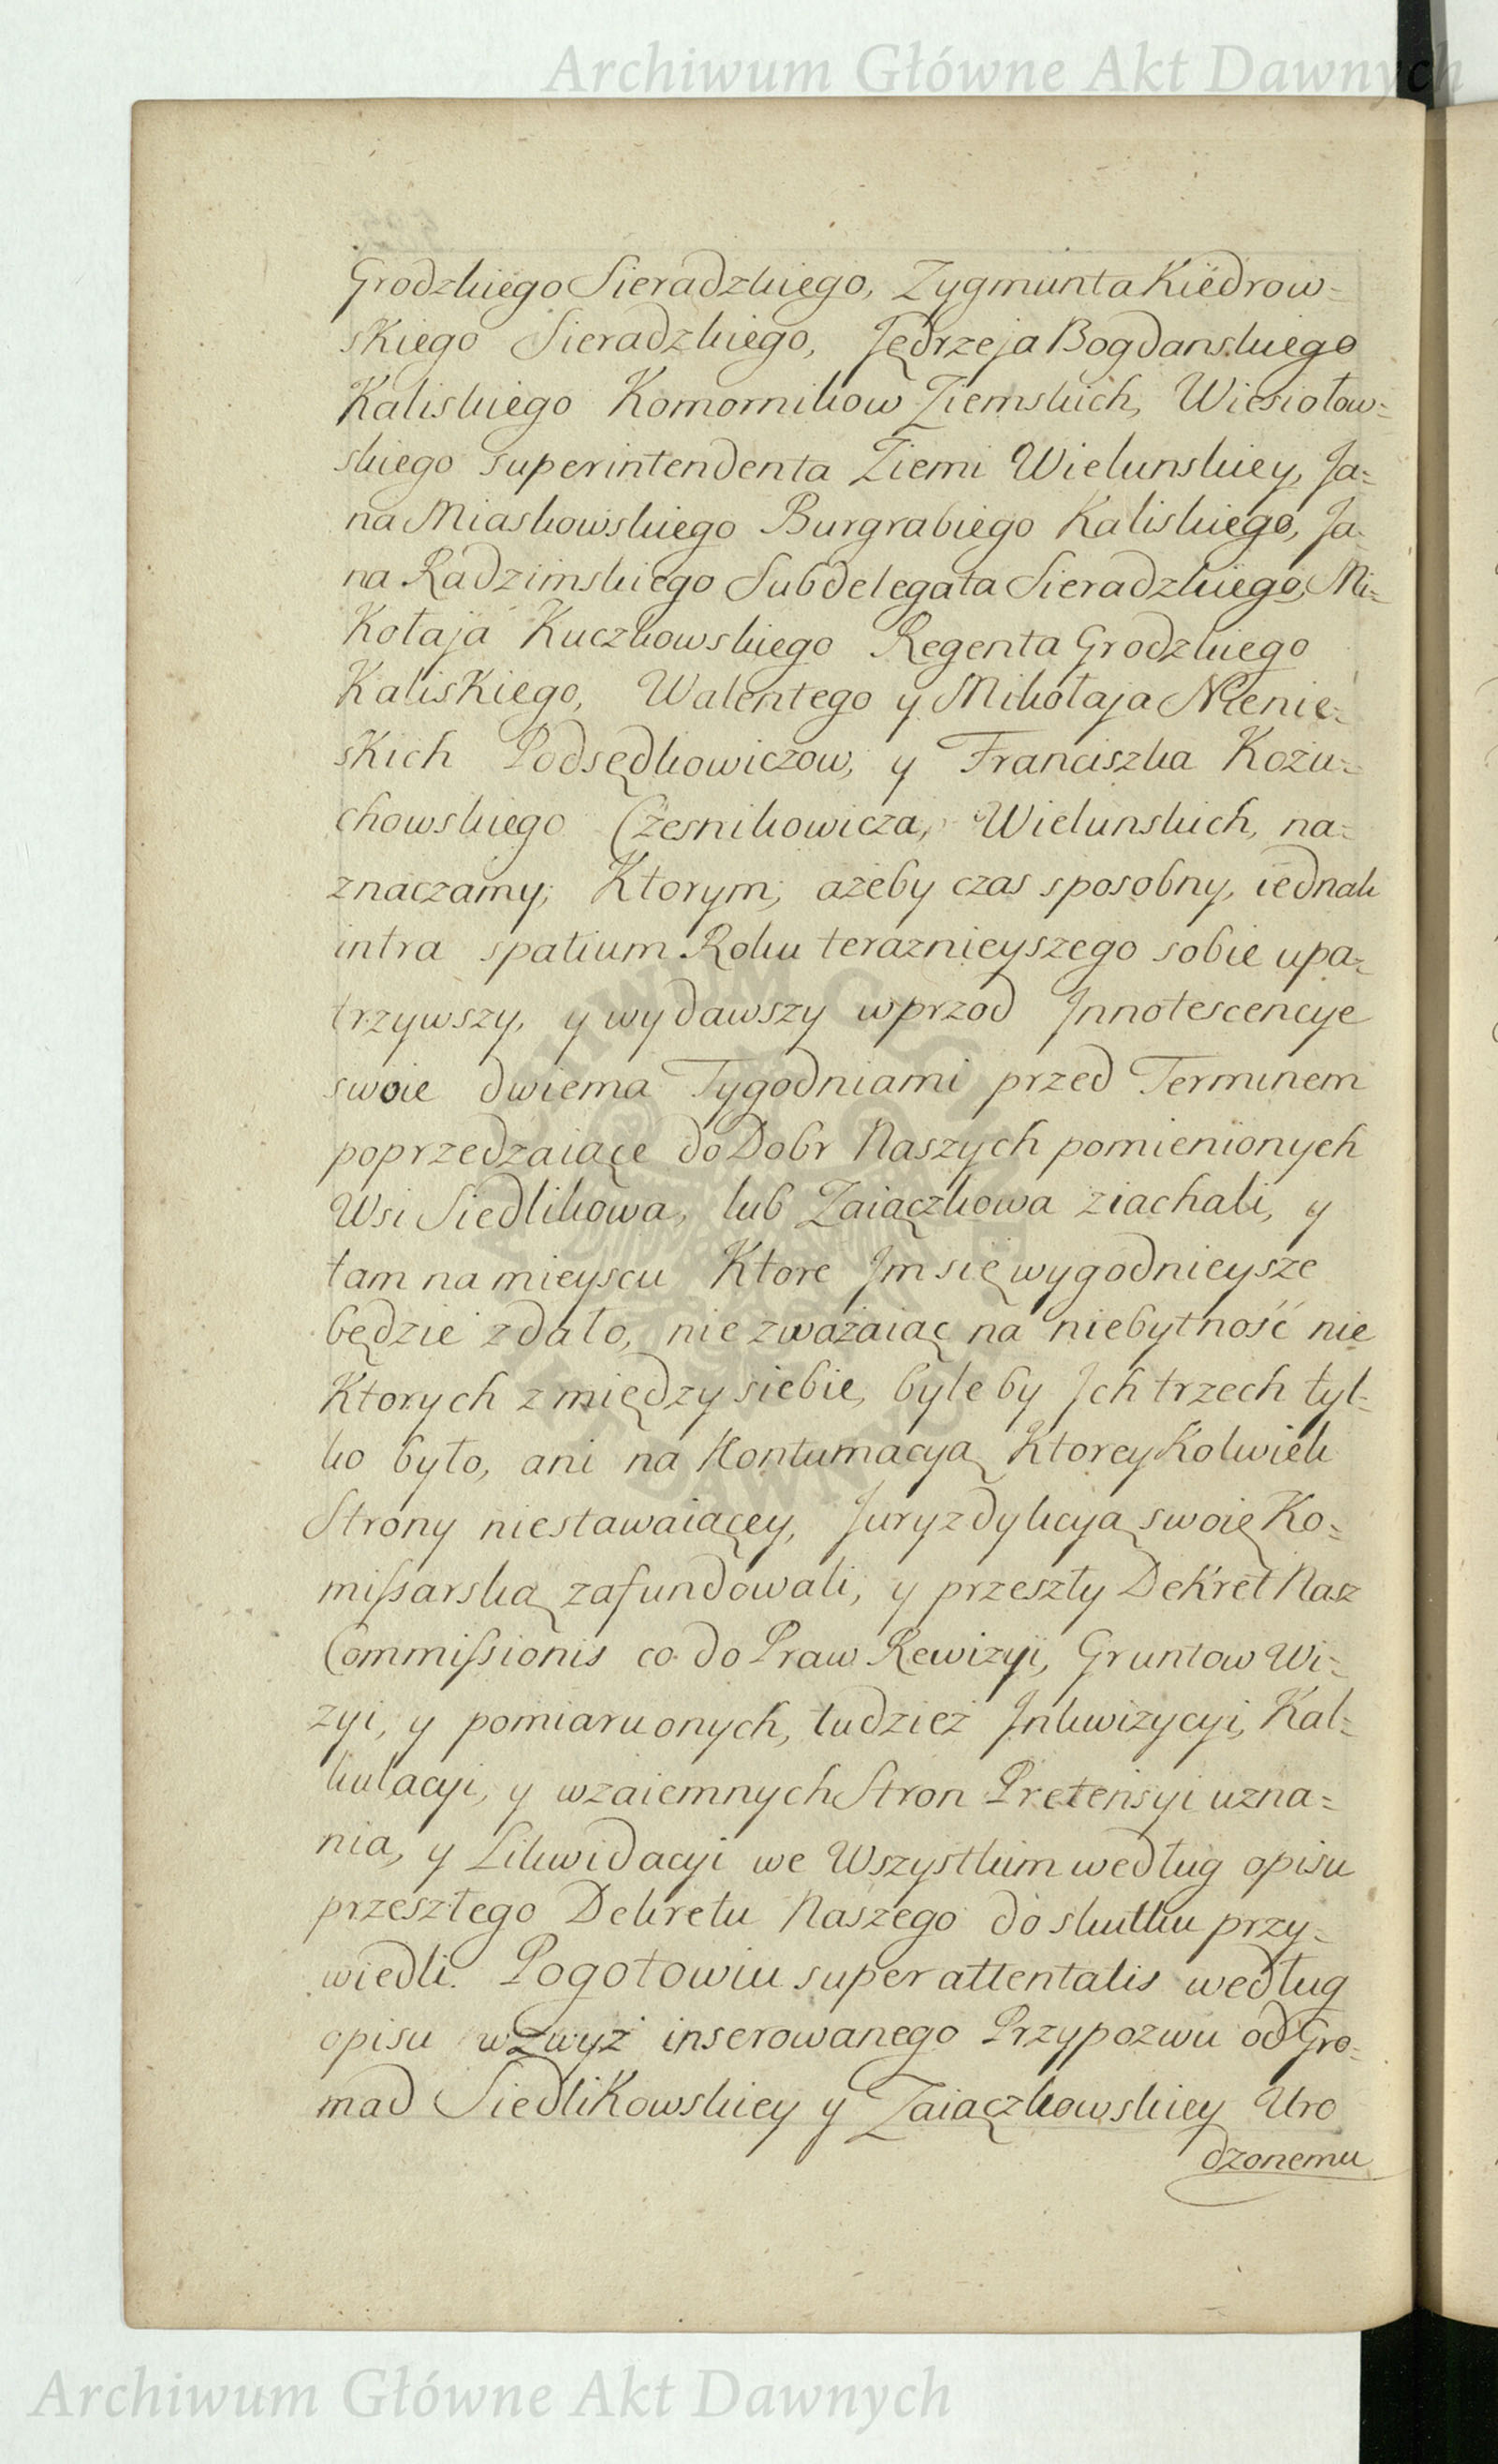 Archiwum Główne Akt Dawnych
Grodzkiego Sieradzkiego, Zygmunta Kiedrow=
skiego Sieradzkiego, Jędrzeja Bogdanskiego
Kaliskiego Komornikow Ziemskich, Wiesiołow=
skiego Superintendenta Ziemi Wielunskiey, Ja=
na Miaskowskiego Burgrabiego Kaliskiego, Ja=
na Radzimskiego Subdelegata Sieradzkiego, Mi=
kołaja Kuczkowskiego Regenta Grodzkiego
Kaliskiego, Walentego y Mikołaja
skich Podsędkowiczow, y Franciszka Kożu=
chowskiego Czesnikowicza, Wielunskich, na=
znaczamy; Ktorym, ażeby czas sposobny, iednak
intra spatium Roku teraznieyszego sobie upa=
trzywszy, y wydawszy wprzod Innotescencye
swoie dwiema Tygodniami przed Terminem
poprzedzaiące do Dobr Naszych pomienionych
Wsi Siedlikowa, lub Zaiączkowa ziachali, y
tam na mieyscu Ktore Im się wygodnieysze
będzie zdało, nie zważaiąc na niebytność nie
Ktorych z między siebie, byle by Ich trzech tyl=
ko było, ani na Kontumacyą Ktorey Kolwiek
Strony niestawaiącey, Juryzdykcyą swoię Ko=
missarską zafundowali, y przeszły Dekret Nasz
Commissionis co do Praw Rewizyi, Gruntow Wi=
zyi, y pomiaru onych, tudzież Inkwizycyi, Kal=
kulacyi, y wzaiemnych Stron Pretensyi uzna=
nia, y Likwidacyi we Wszystkim według opisu
przeszłego Dekretu Naszego do skutku przy=
wiedli. Pogotowiu super attentatis według
opisu wzwyż inserowanego Przypozwu od Gro=
mad Siedlikowskiey y Zaiączkowskiey Uro
dzonemu
Archiwum Główne Akt Dawnych